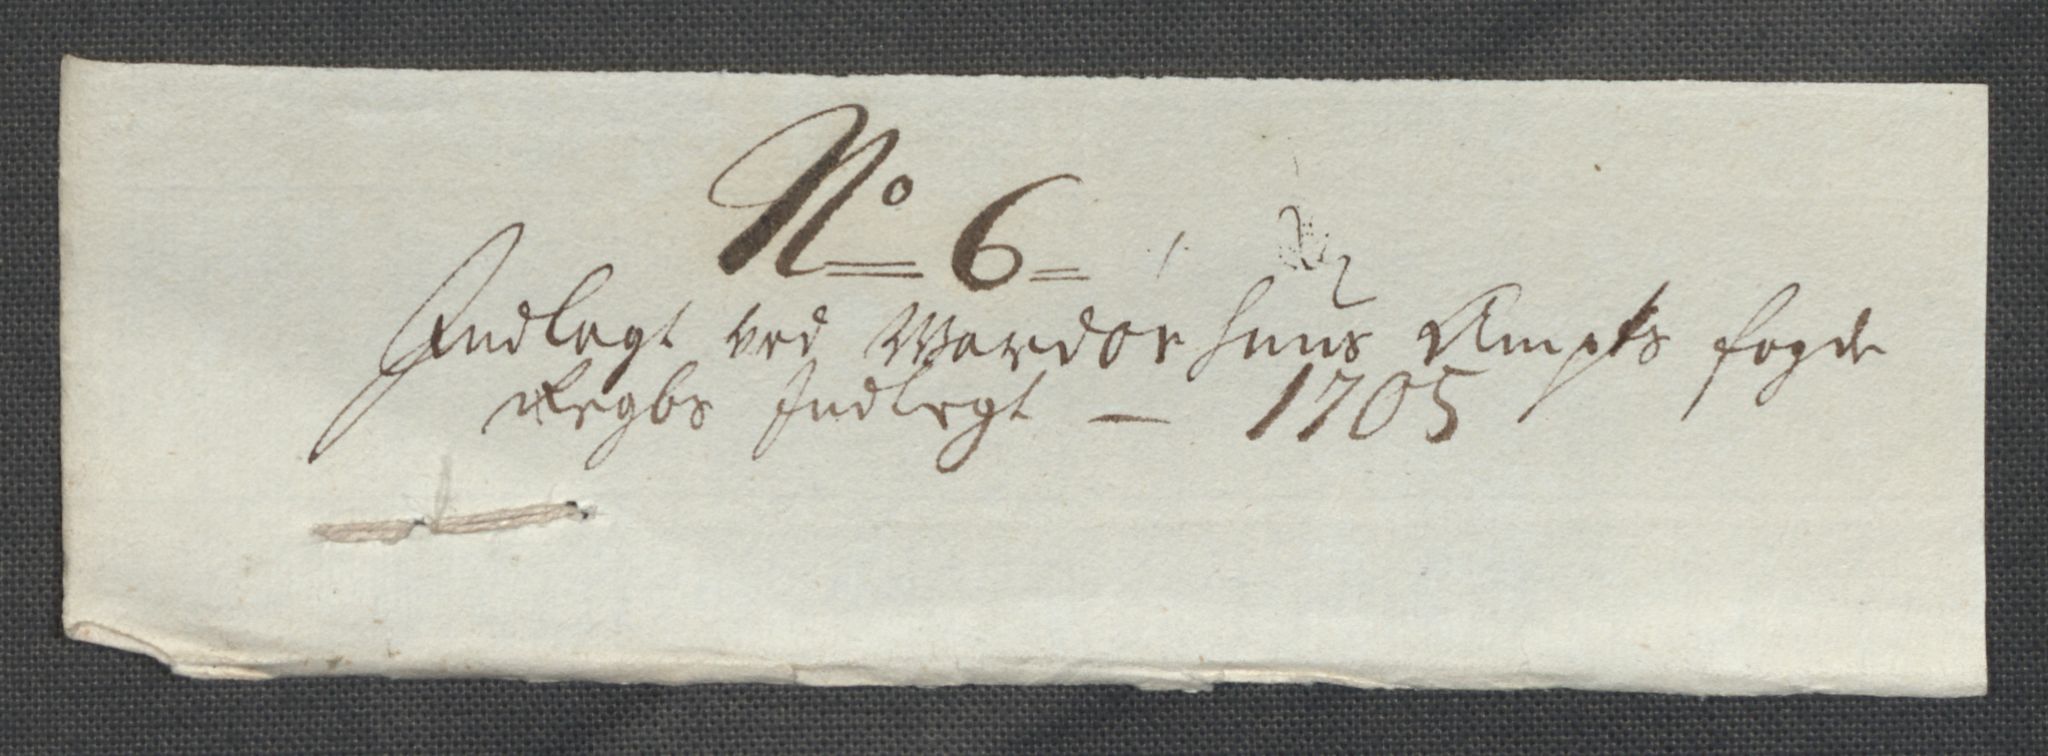 No 6
Indlagt ved Wardøehuus Ampts fogde
Regbs Indlegt – 1705